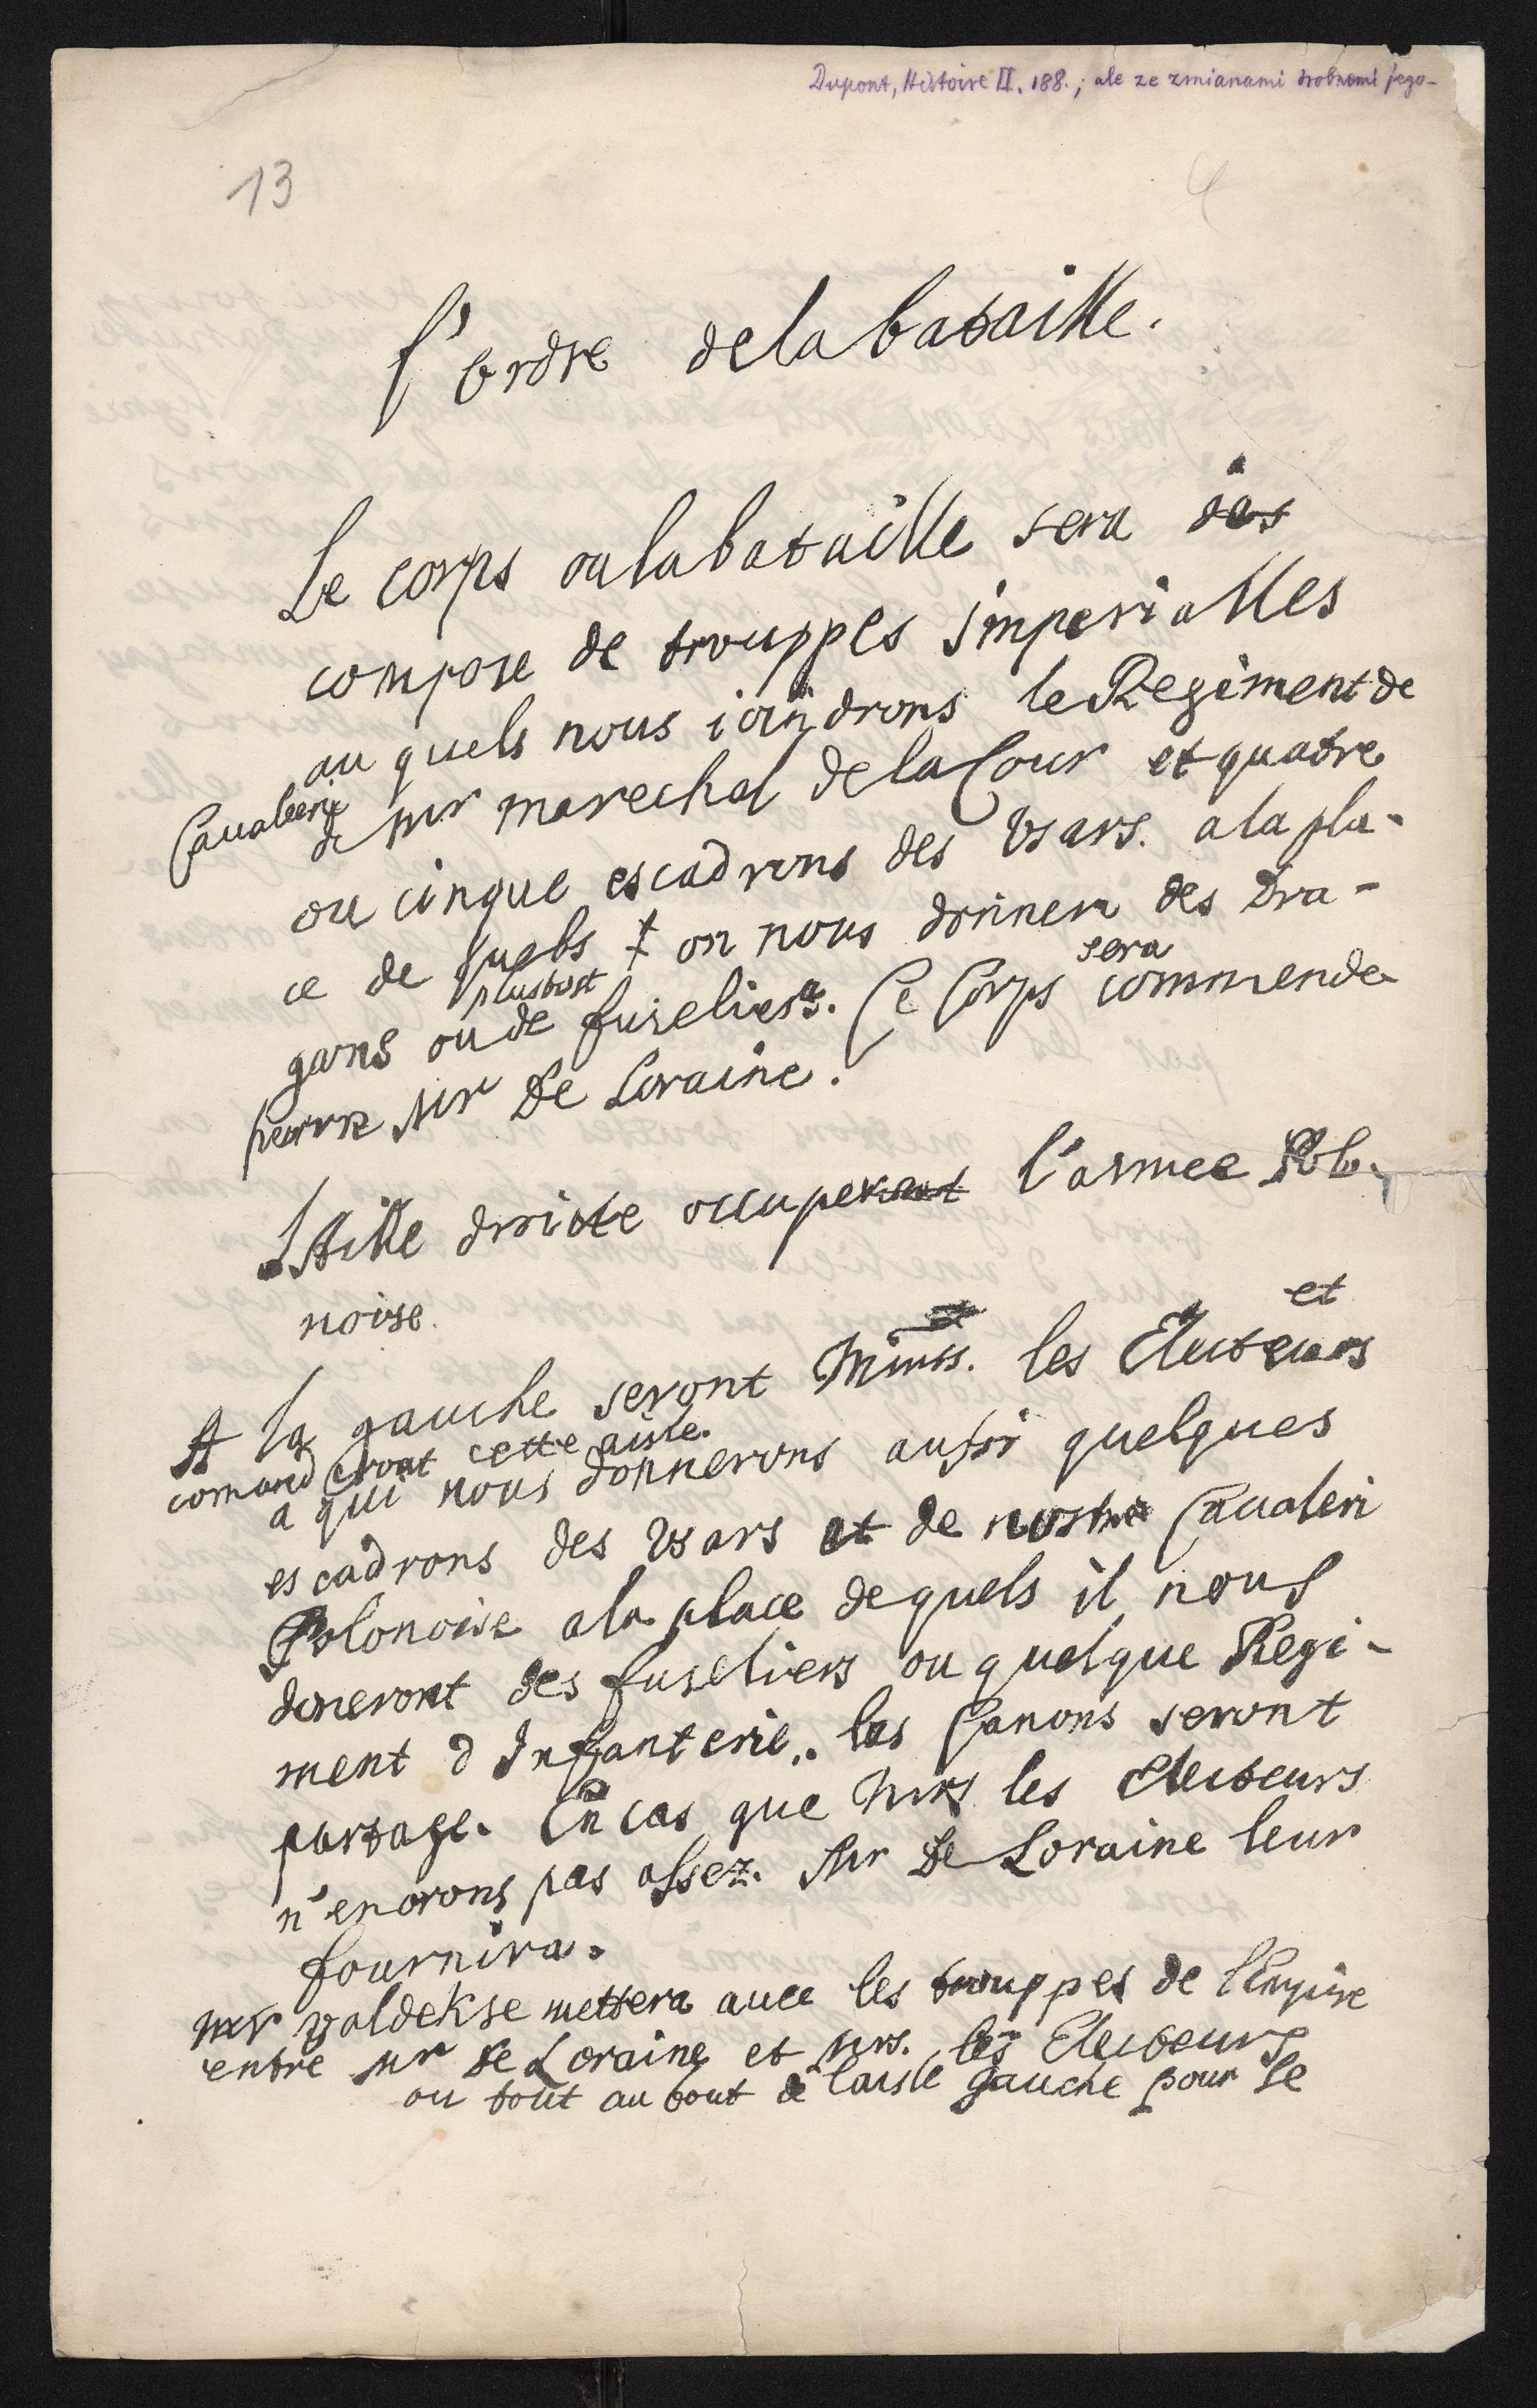 Dupont, Histoire II. 188.; ale ze zmianami drobnemi jego-
13
l'ordre dela bataille.
Le corps ou la bataille sera des
compose de trouppes imperialles
au quels nous ioindrons le Regiment de
Caualerie de Mr marechal de la Cour et quatre
ou cinque escadrons des Usars. a la pla-
ce de quels on nous donnera des Dra-
gans ou plustost de fuseliers. Ce Corps sera commende
par Mr De Loraine.
L'Aille droicte occuperont l'armee Pol-
noise.
A la gauche seront Mrs. les Electeurs et
comanderont cette aisle.
a qui nous donnerons aussi quelques
escadrons des Usars et de nostre Caualeri
Polonoise a la place de quels il nous
doneront des fuseliers ou quelque Regi-
ment d Infanterie. les Canons seront
partage. En cas que Mrs les Electeurs
n'en orons pas assez. Mr De Loraine leur
fournira.
Mr Valdek se mettera auec les trouppes de l'Empire
entre Mr De Loraine et Mrs. les Electeurs
ou tout au bout de laisle gauche pour le